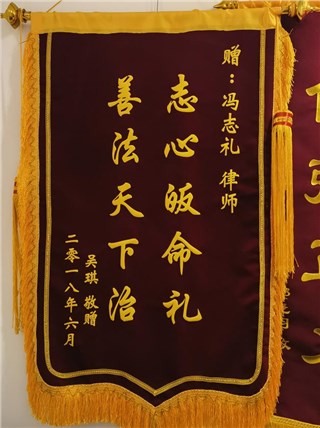 赠：冯志礼 律师
志心皈命礼
善法天下治
吴琪 敬赠
二零一八年六月